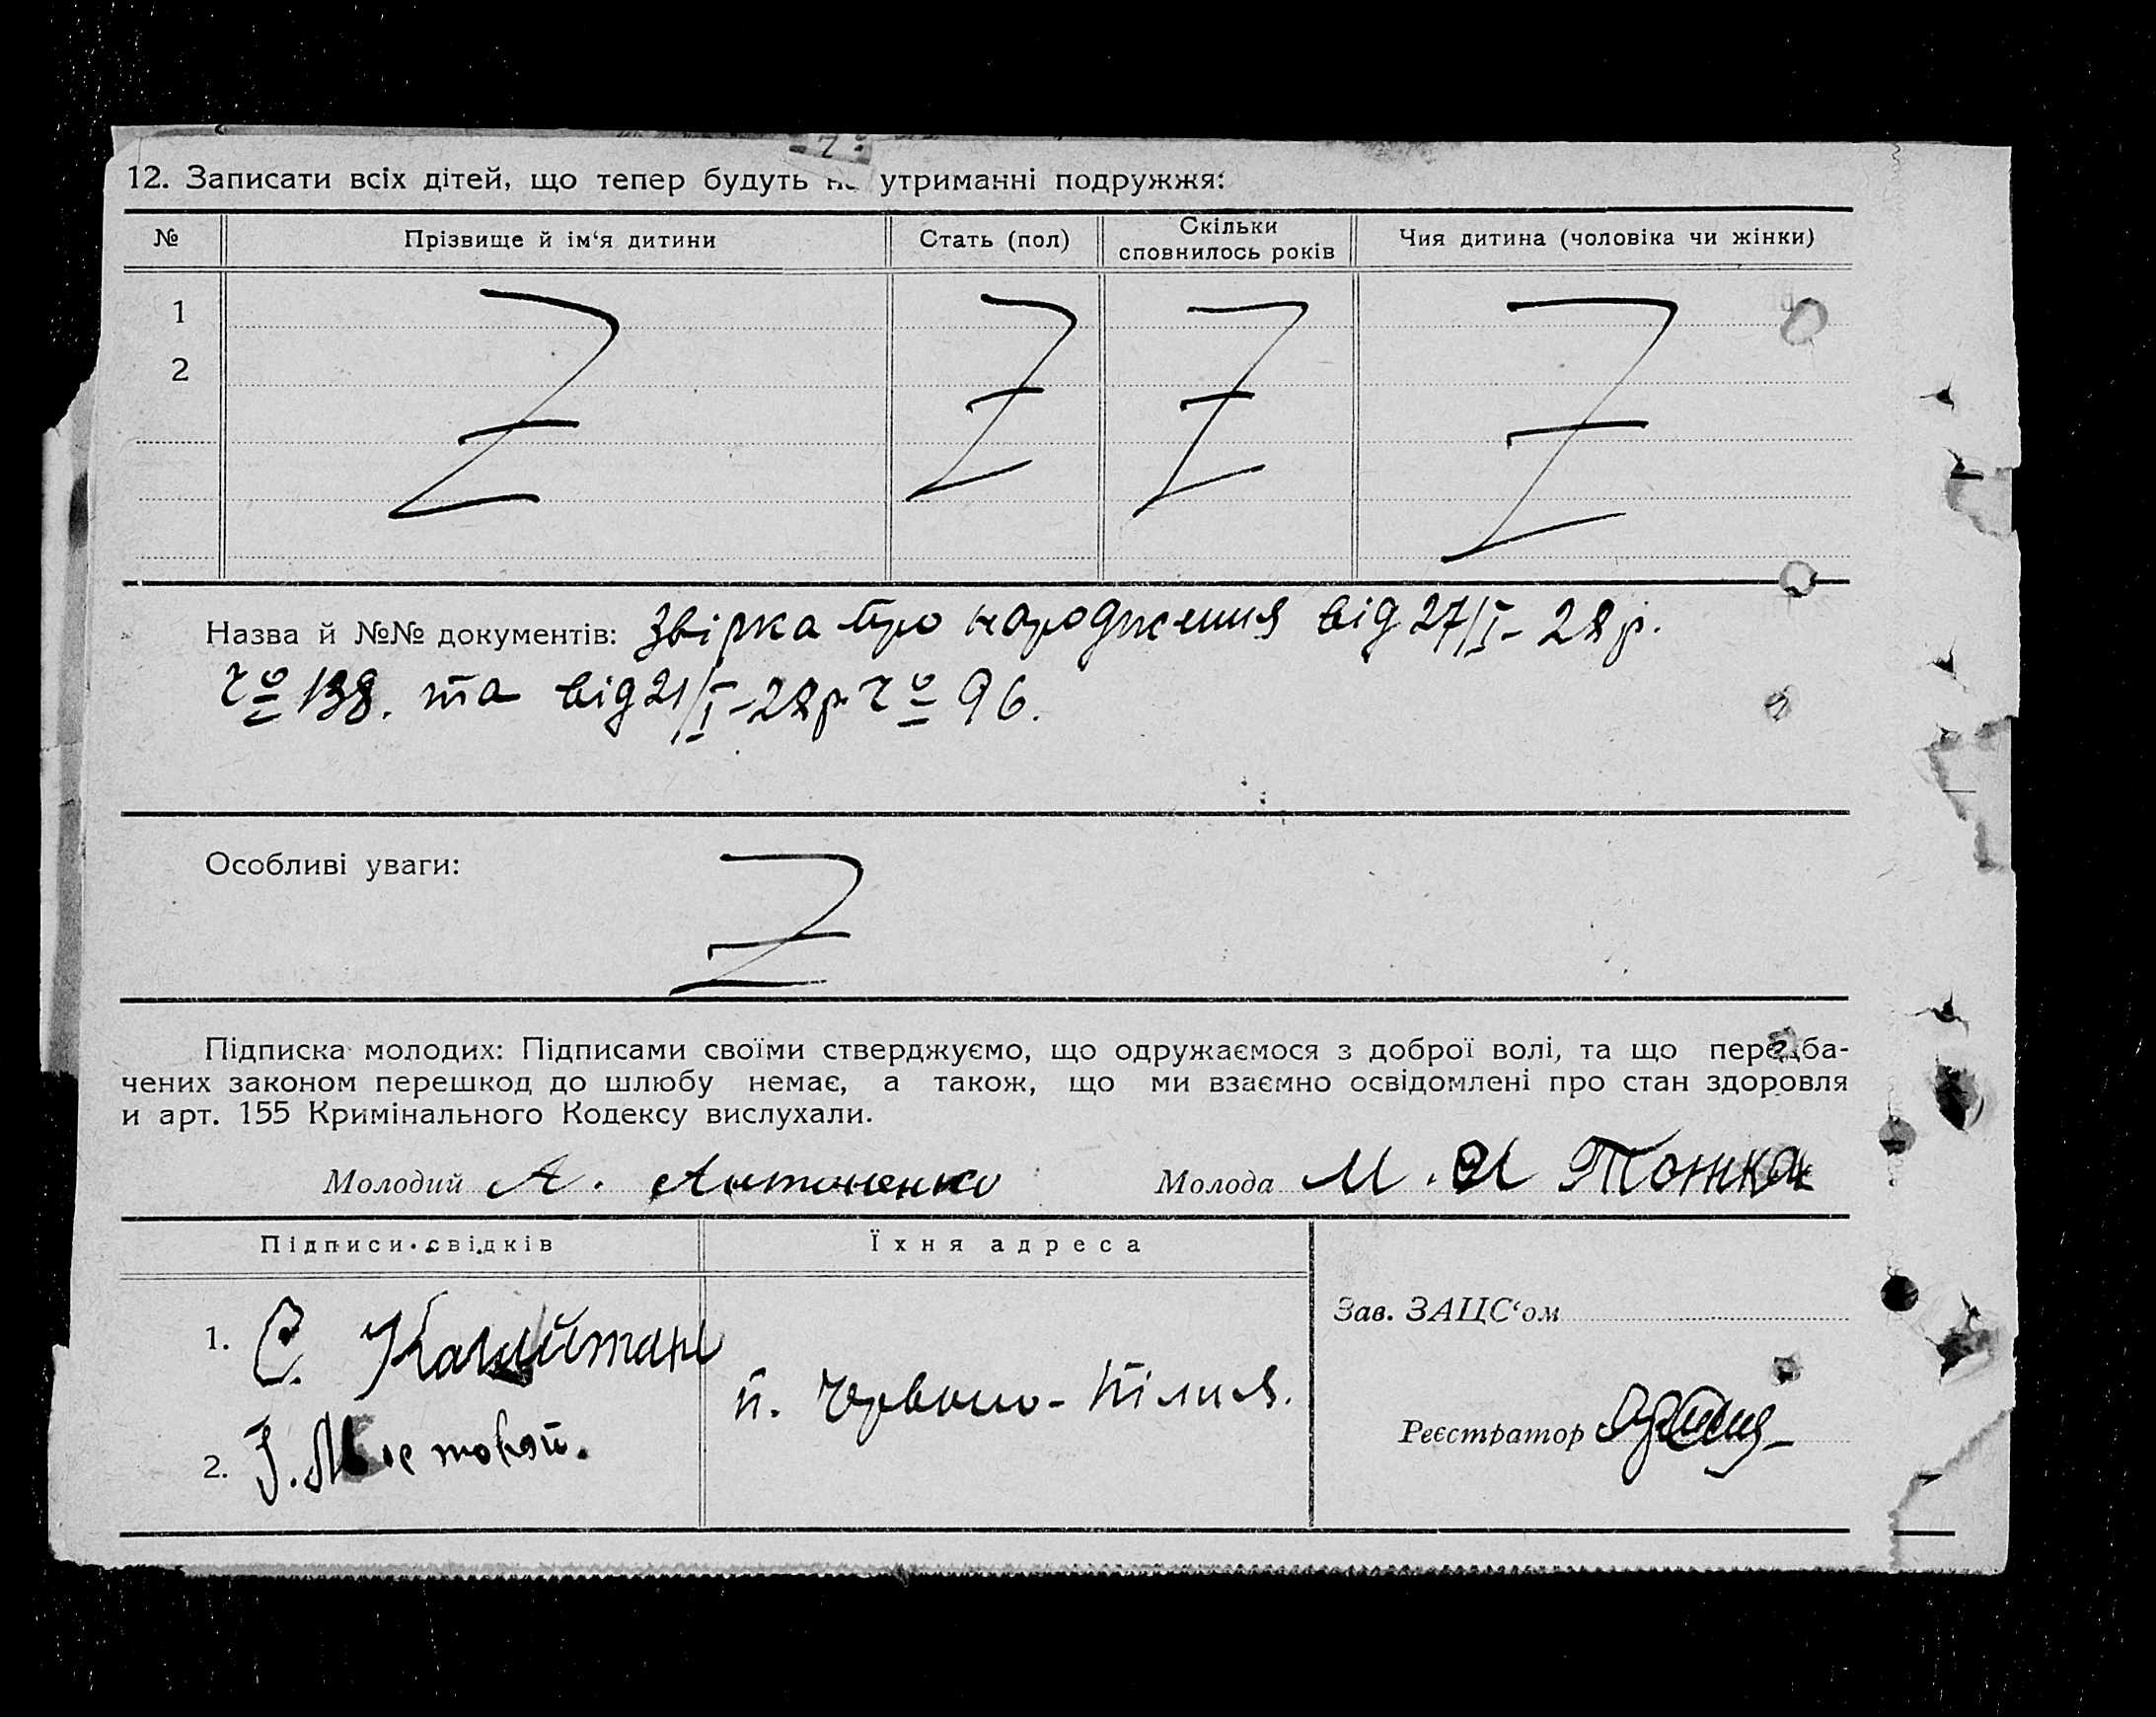 12. Записати всіх дітей, що тепер будуть на утриманні подружжя:
№ Прізвище й ім‘я дитини Стать (пол) Скільки сповнилось років Чия дитина (чоловіка чи жінки)
1 Z Z Z Z
2
Назва й №№ документів: Звірка про народження від 27/I- 28 р.
чо 138. та від 21/I-28р чо 96.
Особливі уваги: Z
Підписка молодих: Підписами своїми стверджуємо, що одружаємося з доброї волі, та що передба-
чених законом перешкод до шлюбу немає, а також, що ми взаємно освідомлені про стан здоровля
и арт. 155 Кримінального Кодексу вислухали.
Молодий А. Антоненко Молода М. Тонка
Підписи свідків Їхня адреса
Зав. ЗАЦС‘ом
1. С.
п. Червоно-
Реєстратор
2. І.